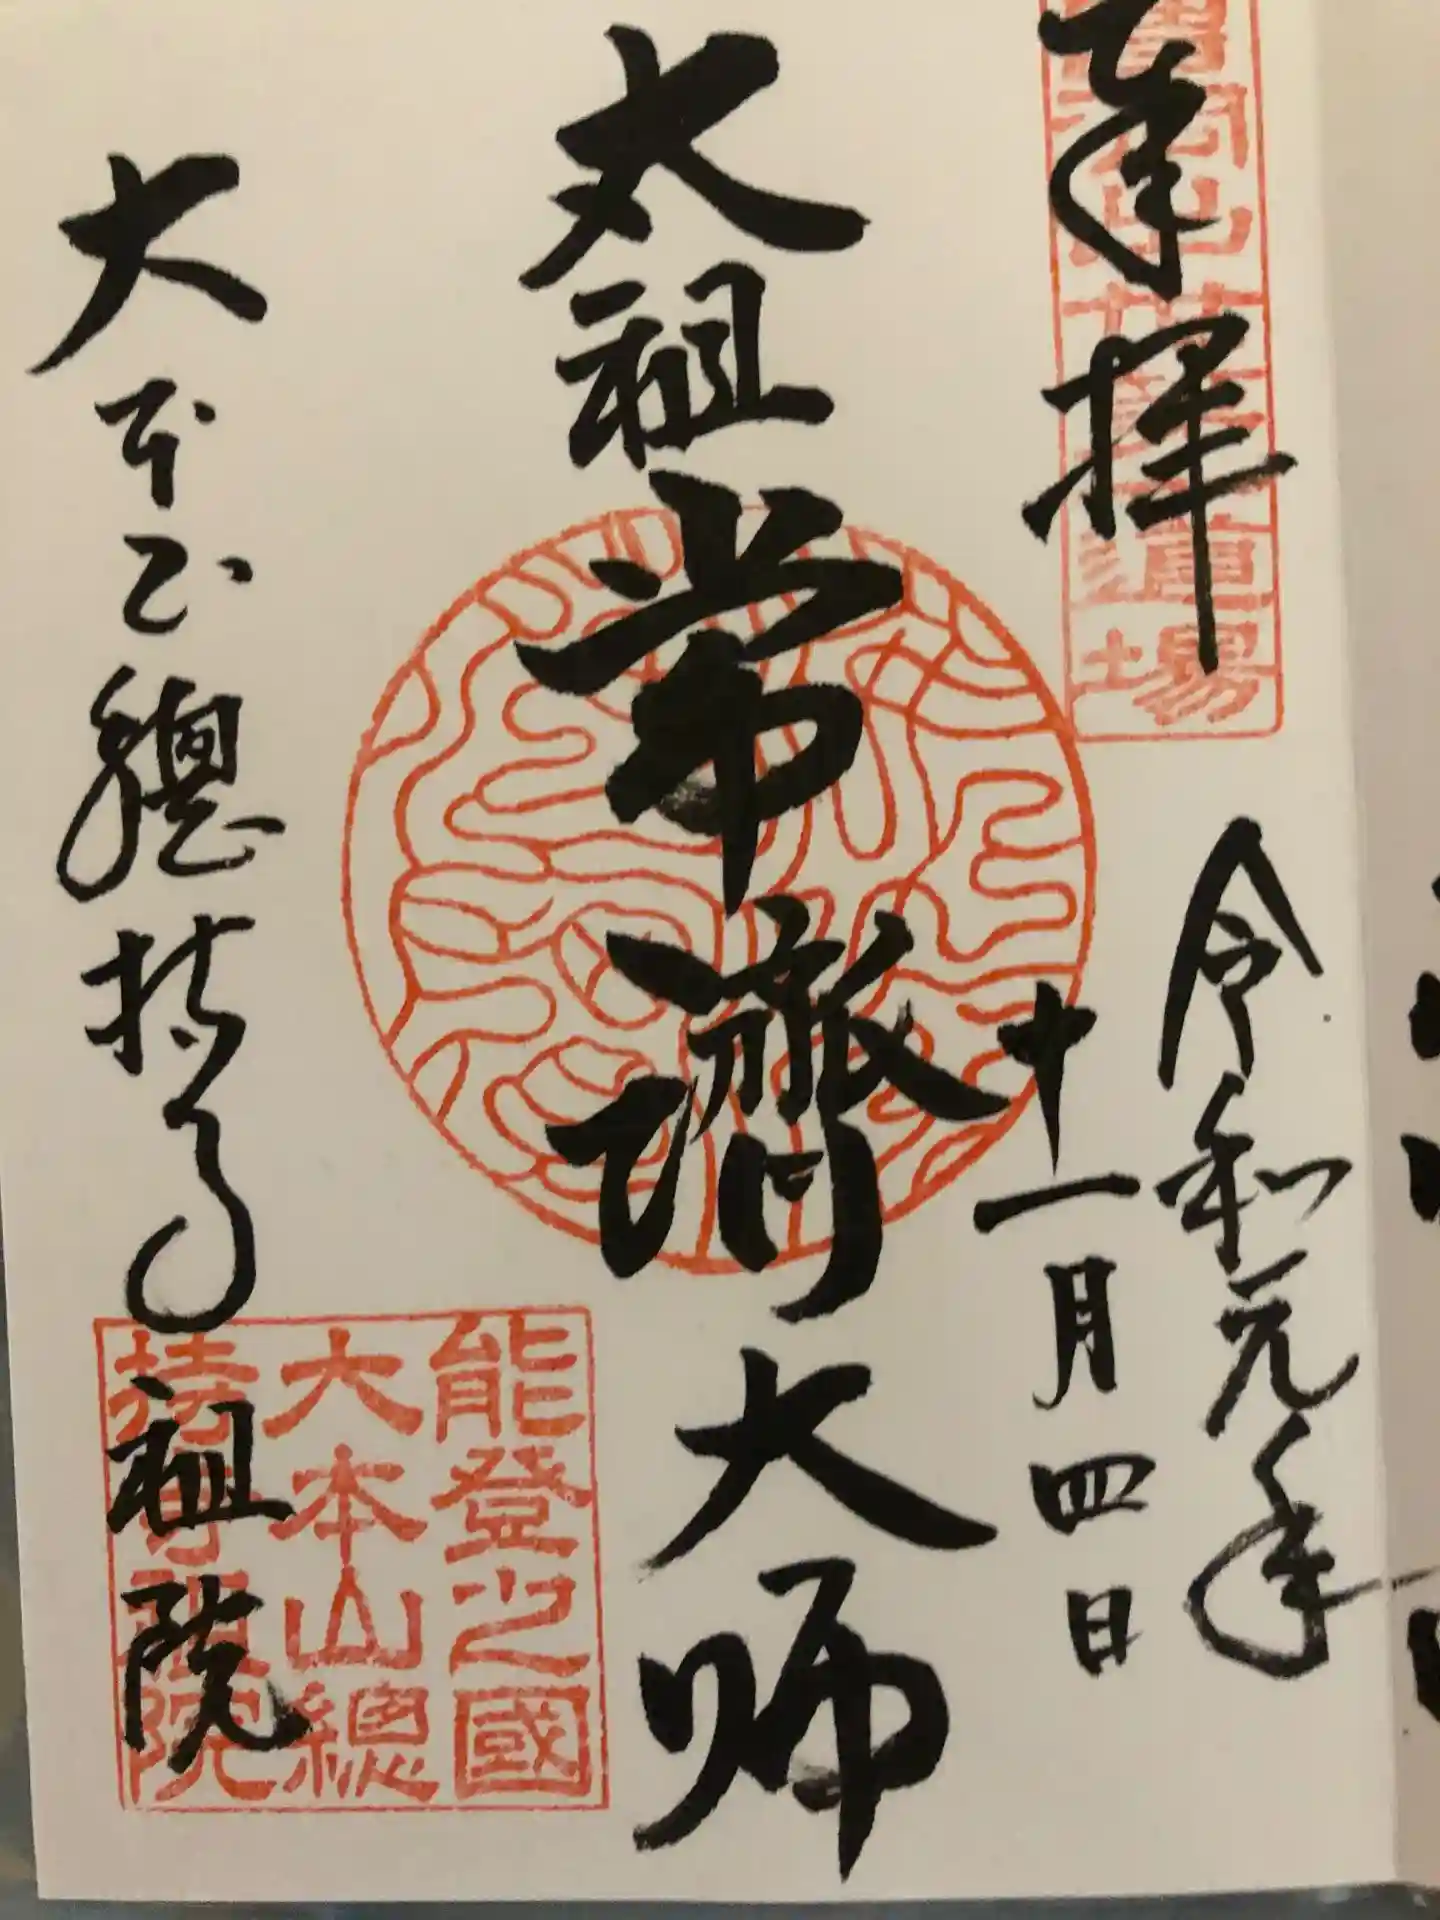 奉拝
令和元年
十一月四日
太祖常濟大师
大本山總持寺
祖院
能登之國
大本山總
持寺祖院